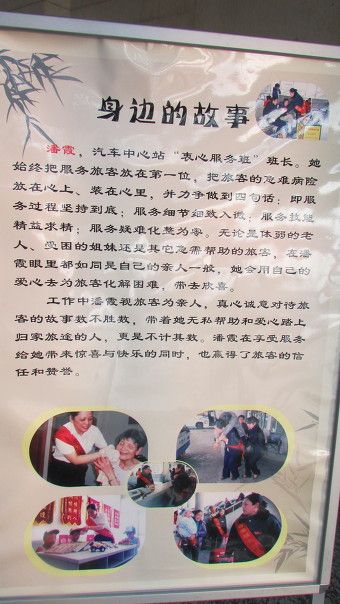 身边的故事
潘霞，汽车中心站“衷心服务班”班长。她
始终把服务旅客放在第一位，把旅客的急难病险
放在心上、装在心里，并力争做到四句话：即服
务过程坚持到底；服务细节细致入微；服务技能
精益求精；服务疑难化整为零。无论是体弱的老
人、受困的姐妹还是其它急需帮助的旅客，在潘
霞眼里都如同是自己的亲人一般，她会用自己的
爱心去为旅客化解困难，带去欣喜。
工作中潘霞视旅客为亲人，真心诚意对待旅
客的故事数不胜数，带着她无私帮助和爱心踏上
归家旅途的人，更是不计其数。潘霞在享受服务
给她带来惊喜与快乐的同时，也赢得了旅客的信
任和赞誉。